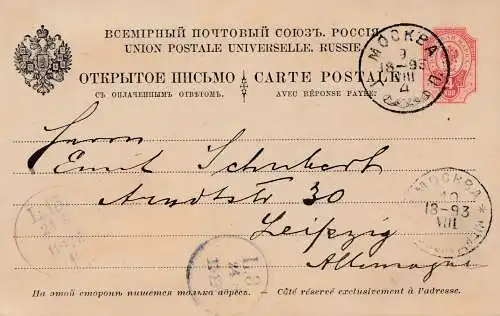 ВСЕМІРНЫЙ ПОЧТОВЫЙ СОЮЗЪ. РОССІЯ
UNION POSTALE UNIVERSELLE. RUSSIE
ОТКРЫТОЕ ПИСЬМО CARTE POSTALE
СЪ ОПЛАЧЕННЫМЪ ОТВѢТОМЪ. AVEC RÉPONSE PAYÉE
МОСКВА
9
18-93
VIII
4
Herrn
Emil Schubert
Arndtstr 30
Leipzig
Allemagne
МОСКВА
10
18-93
VIII
На этой сторонѣ пишется только адресъ. — Côté réservé exclusivement à l'adresse.